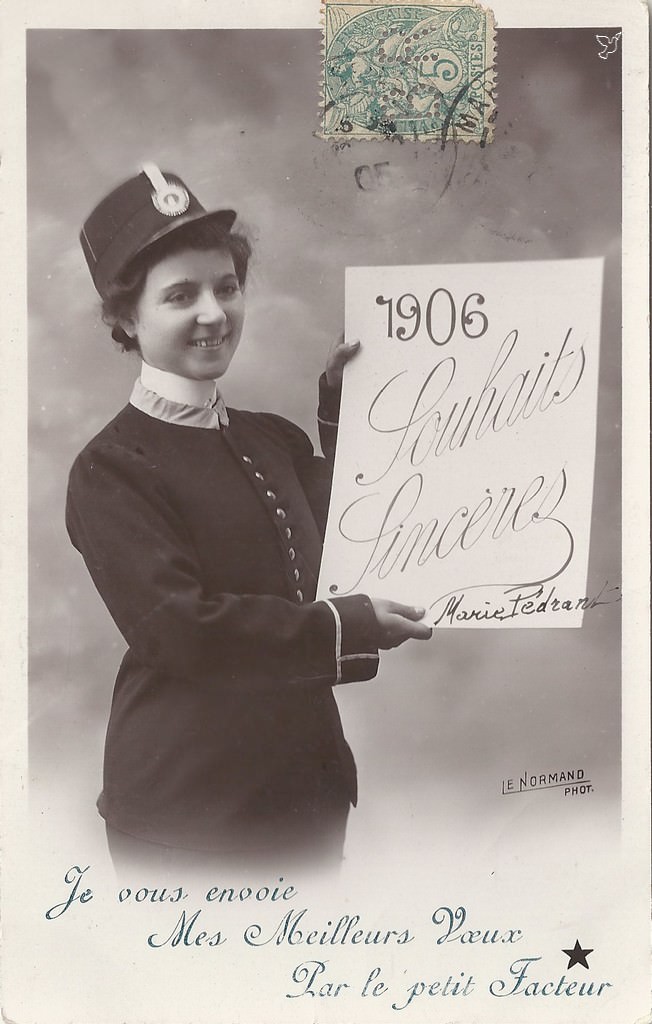 FRANÇAISE
5
POSTES
MA
05
1906
Souhaits
Sincères
Marie Pédrant
LE NORMAND
PHOT.
Je vous envoie
Mes Meilleurs Vœux
Par le petit Facteur